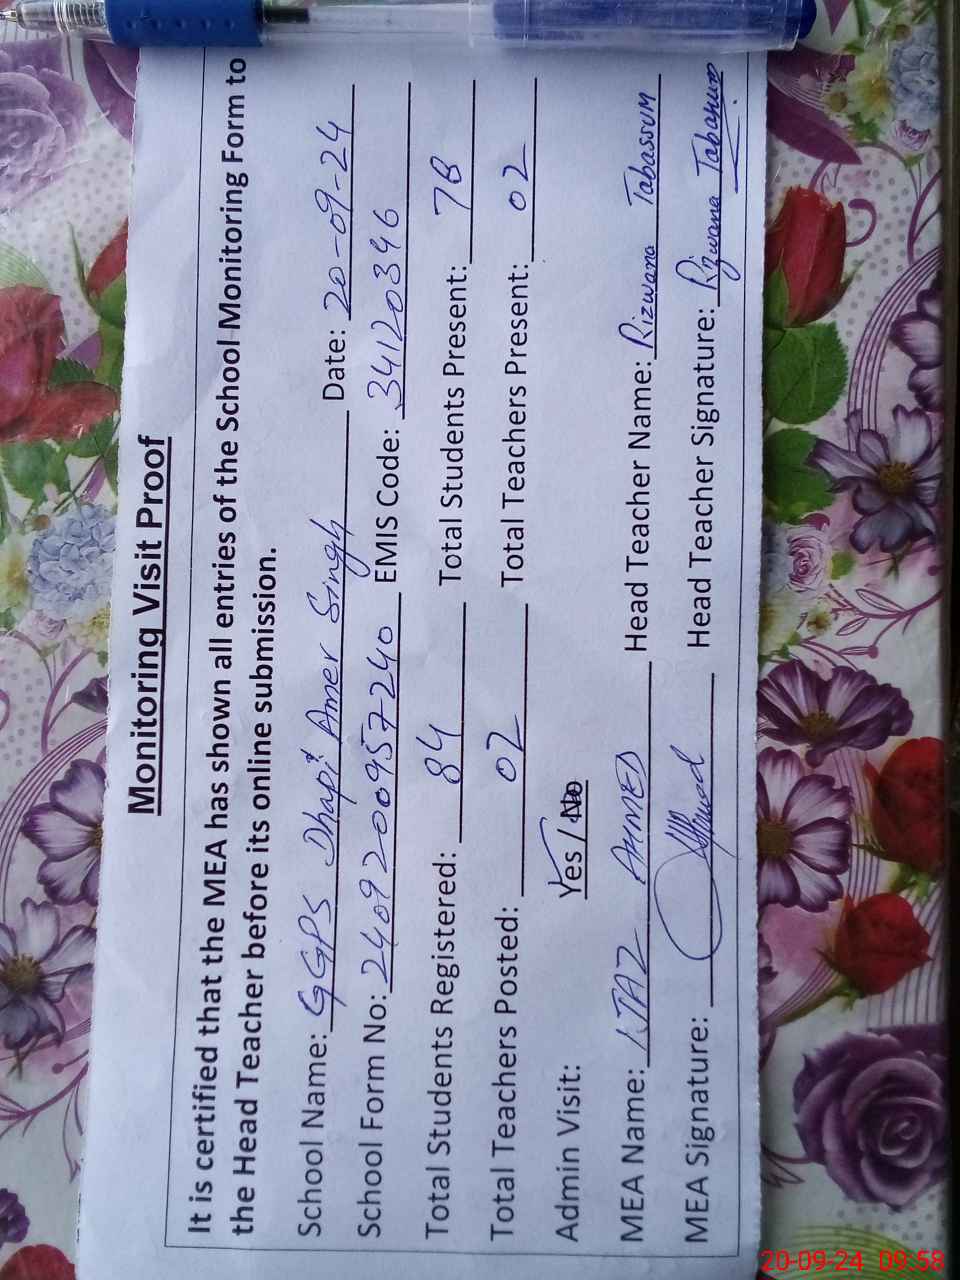 Monitoring Visit Proof
It is certified that the MEA has shown all entries of the School Monitoring Form to
the Head Teacher before its online submission.
School Name: GGPS Dhapi Amer Singh Date: 20-09-24
School Form No: 2409200957240 EMIS Code: 34120346
Total Students Registered: 84 Total Students Present: 78
Total Teachers Posted: 02 Total Teachers Present: 02
Admin Visit: Yes / No
MEA Name: IJAZ AHMED Head Teacher Name: Rizwana Tabassum
MEA Signature: Ahmed Head Teacher Signature: Rizwana Tabasum
20-09-24 09:58